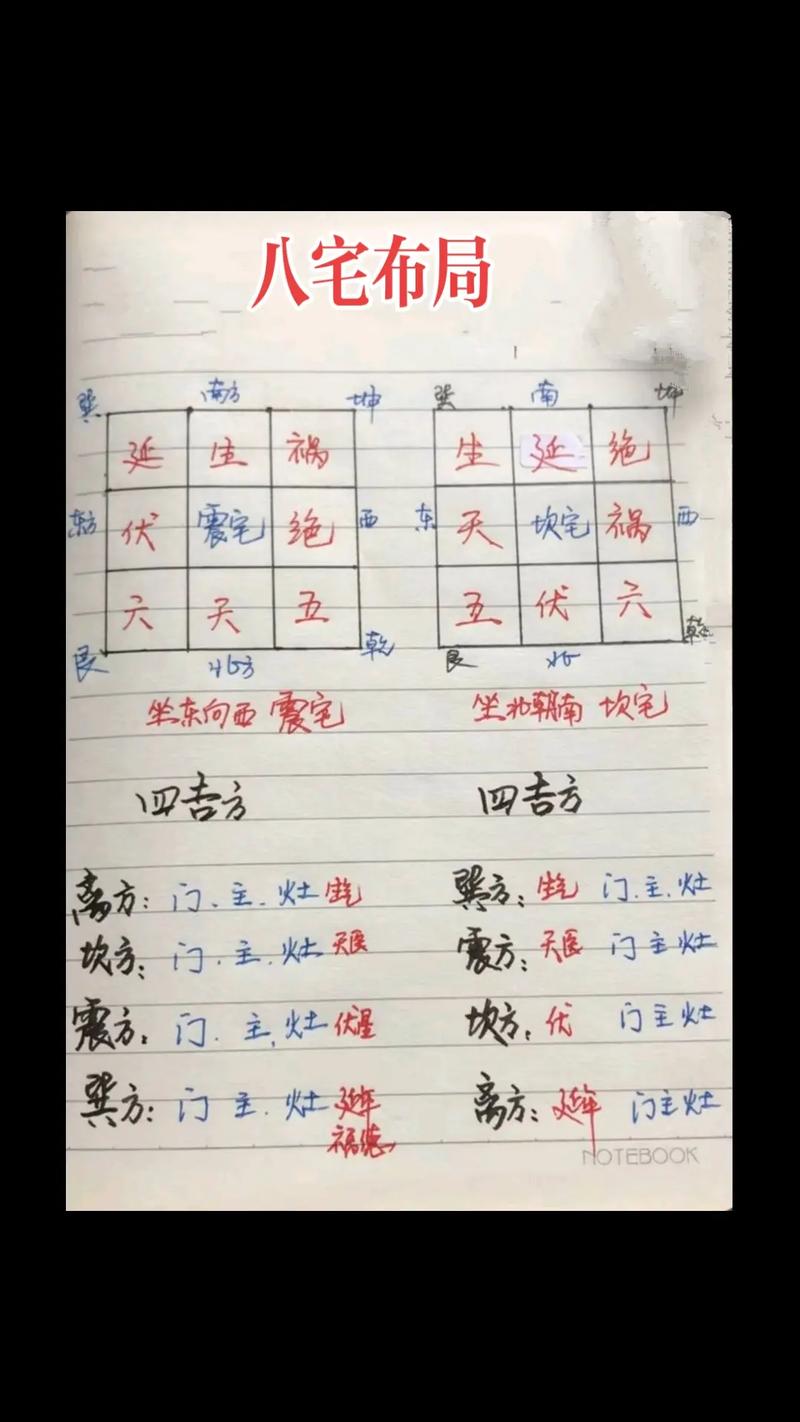 八宅布局
巽 南方 坤
延 生 祸
东方 伏 震宅 绝 西
六 天 五
艮 北方 乾
坐东向西 震宅
四吉方
离方：门、主、灶 生气
坎方：门、主、灶 天医
震方：门、主、灶 伏星
巽方：门 主、灶 延年
福德
巽 南 坤
生 延 绝
东 天 坎宅 祸 西
五 伏 六
艮 北 乾
坐北朝南 坎宅
四吉方
巽方：生气 门、主、灶
震方：天医 门主灶
坎方：伏 门主灶
离方：延年 门主灶
NOTEBOOK